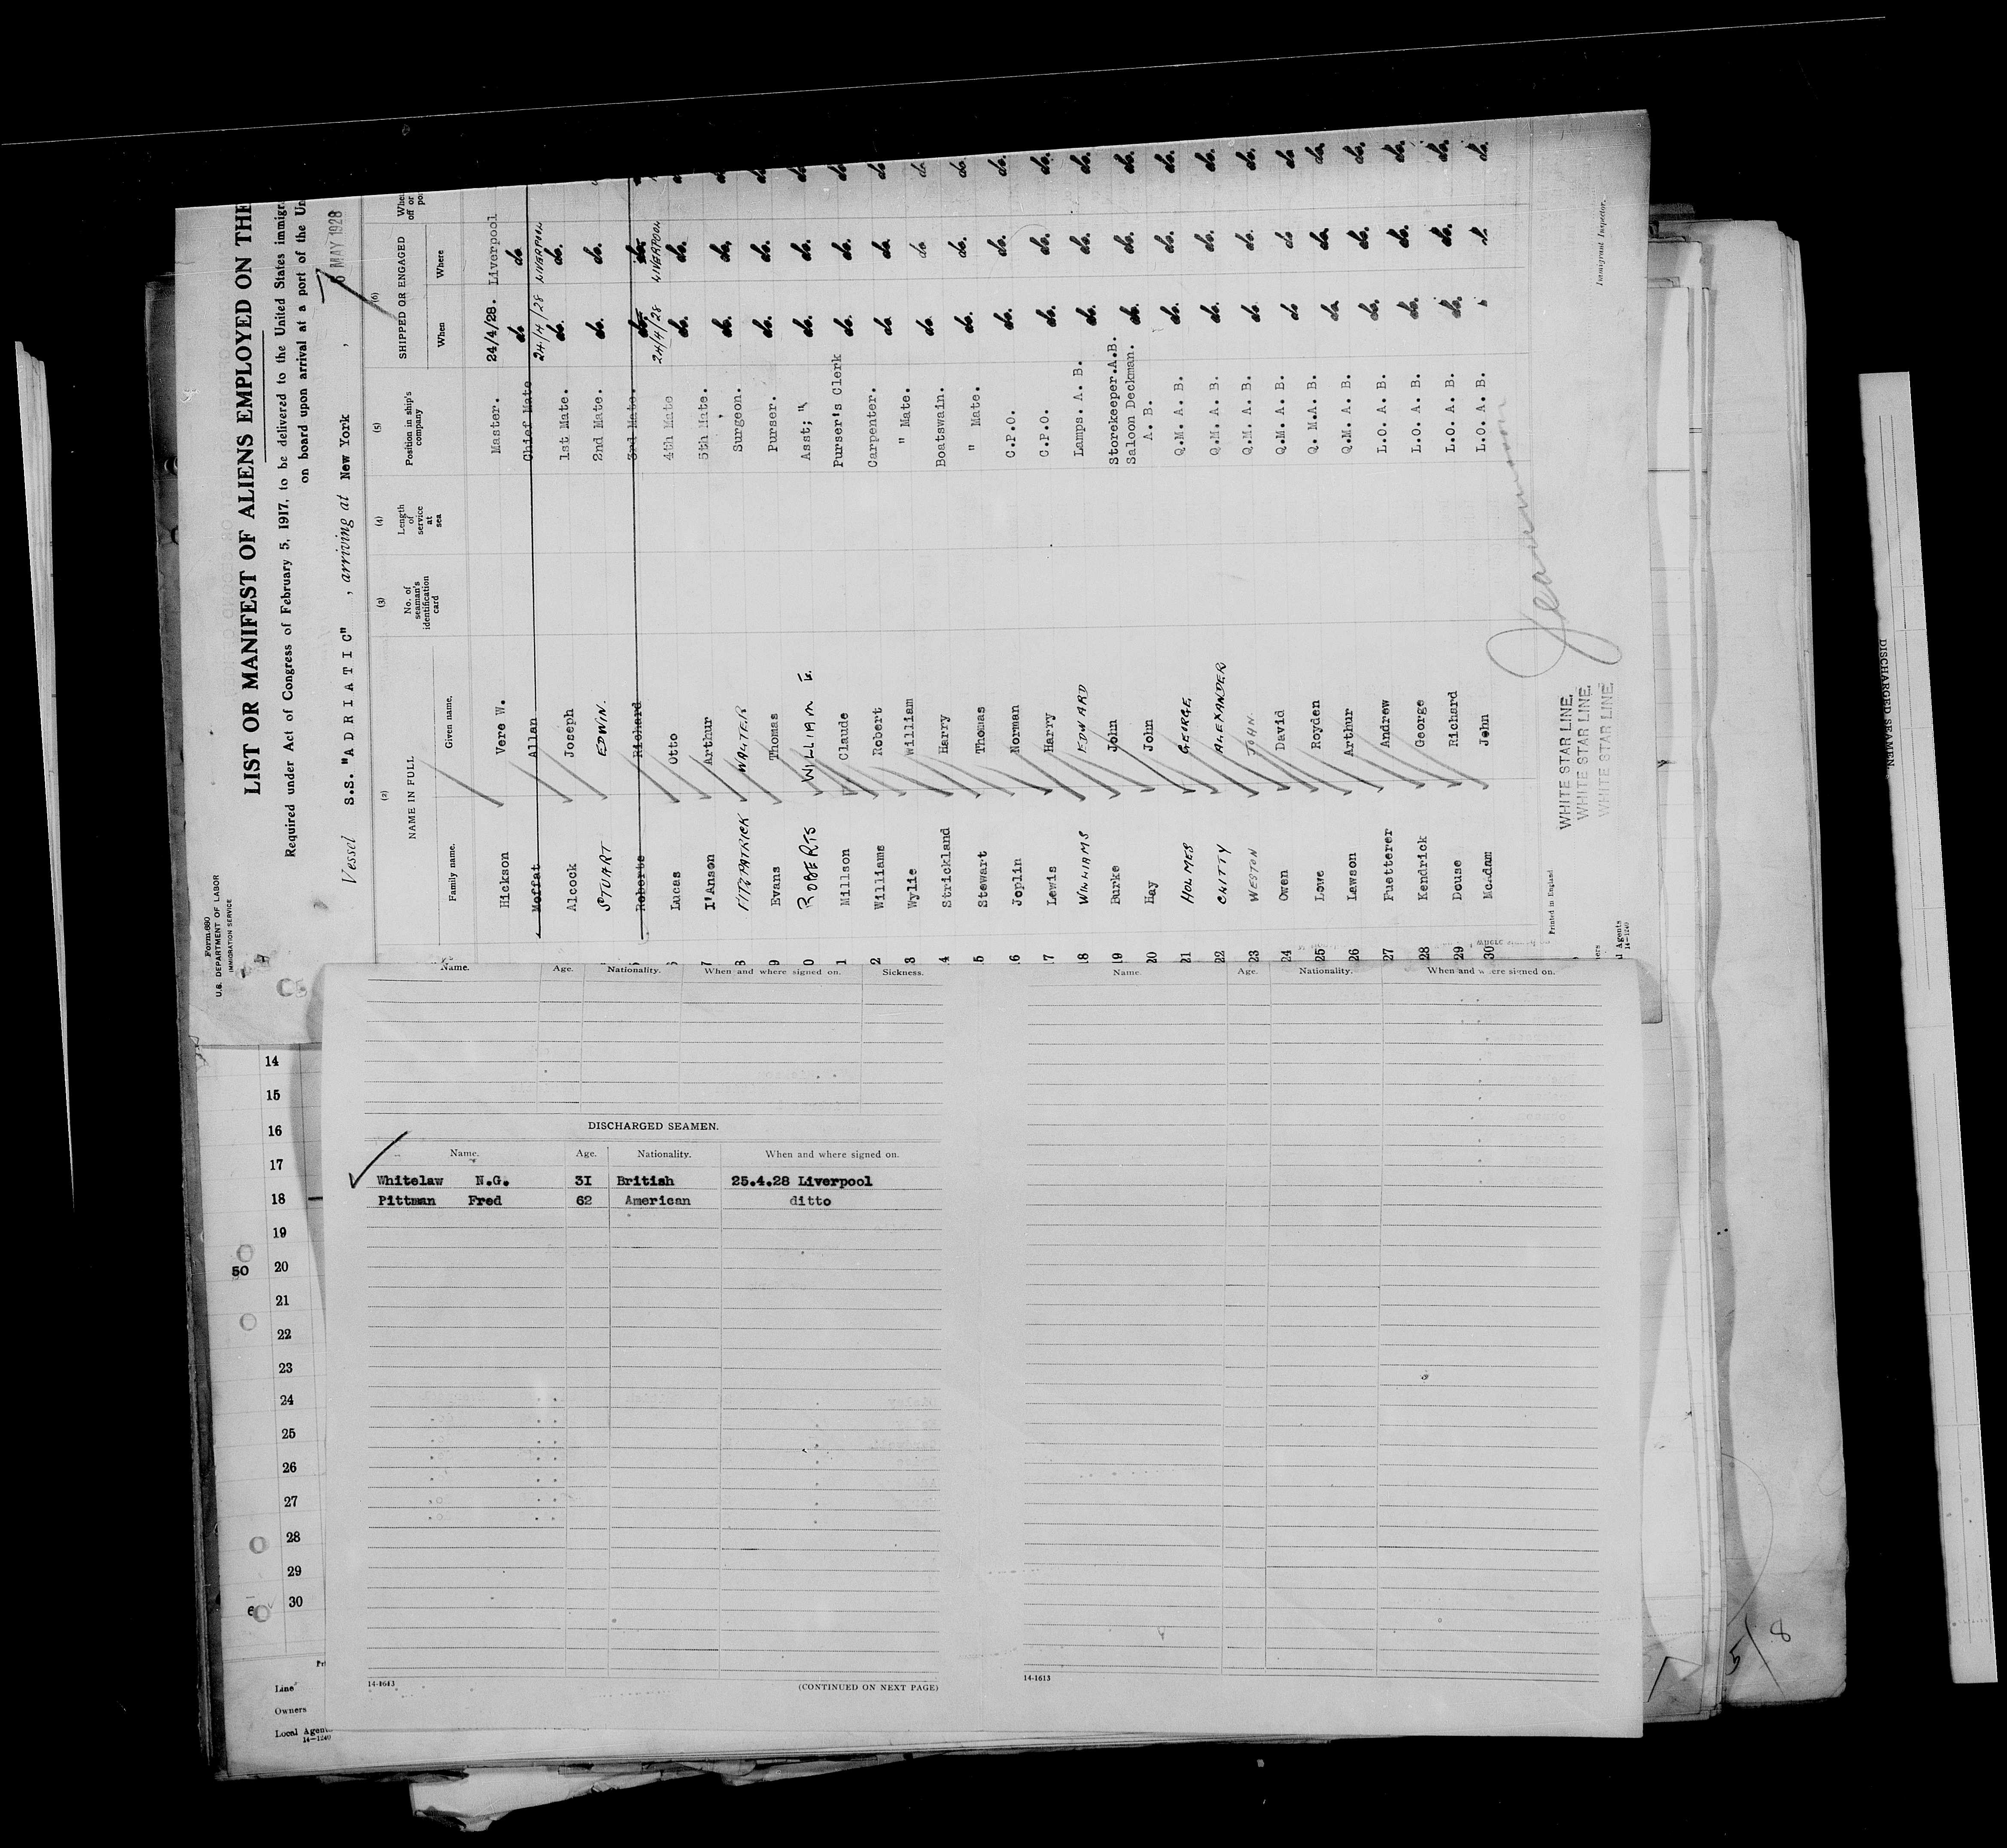 Form 680
U.S. DEPARTMENT OF LABOR
IMMIGRATION SERVICE
LIST OR MANIFEST OF ALIENS EMPLOYED ON THE
Required under Act of Congress of February 5, 1917, to be delivered to the United States immigr
on board upon arrival at a port of the Un
Vessel S.S. "ADRIATIC" , arriving at New York , MAY 1928
(2) (3) (4) (5) (6)
NAME IN FULL No. of seaman's identification card Length of service at sea Position in ship's company SHIPPED OR ENGAGED
Family name. Given name. When Where
Hickson Vere W. Master. 24/4/28. Liverpool
Moffat Allan Chief Mate do do.
24/4/28 LIVERPOOL
Alcock Joseph 1st Mate. do. do.
STUART EDWIN. 2nd Mate. do. do.
Roberts Richard 3rd Mate. do. do.
24/4/28 LIVERPOOL
6 Lucas Otto 4th Mate do. do.
7 I'Anson Arthur 5th Mate. do. do.
8 FITZPATRICK WALTER Surgeon. do. do.
9 Evans Thomas Purser. do. do.
0 ROBERTS WILLIAM E. Asst; " do. do.
1 Millson Claude Purser's Clerk do. do.
2 Williams Robert Carpenter. do. do.
3 Wylie William " Mate. do. do
4 Strickland Harry Boatswain. do. do.
5 Stewart Thomas " Mate. do. do.
16 Joplin Norman C.P.O. do. do.
17 Lewis Harry C.P.O. do. do.
18 WILLIAMS EDWARD Lamps. A. B. do. do.
19 Burke John Storekeeper.A.B. do. do.
Saloon Deckman.
20 Hay John A. B. do. do.
21 HOLMES GEORGE Q.M. A. B. do. do.
22 CHITTY ALEXANDER Q.M. A. B. do. do.
23 WESTON JOHN. Q.M. A. B. do do.
24 Owen David Q.M. A. B. do do
25 Lowe Royden Q. M.A. B. do. do.
26 Lawson Arthur Q.M. A. B. do. do.
27 Puetterer Andrew L.O. A. B. do. do.
28 Kendrick George L.O. A. B. do. do.
29 Douse Richard L.O. A. B. do. do.
30 McAdam John L.O. A. B.
Printed in England
WHITE STAR LINE.
WHITE STAR LINE.
WHITE STAR LINE.
Immigrant Inspector.
Agents
14-1240
Name. Age. Nationality. When and where signed on. Sickness.
Name. Age. Nationality. When and where signed on.
DISCHARGED SEAMEN.
Name. Age. Nationality. When and where signed on.
Whitelaw N.G. 31 British 25.4.28 Liverpool
Pittman Fred 62 American ditto
14-1613
(CONTINUED ON NEXT PAGE)
14-1613
14
15
16
17
18
19
50 20
21
22
23
24
25
26
27
28
29
30
Line
Owners
Local Agen
14-1240
DISCHARGED SEAMEN.
5/8